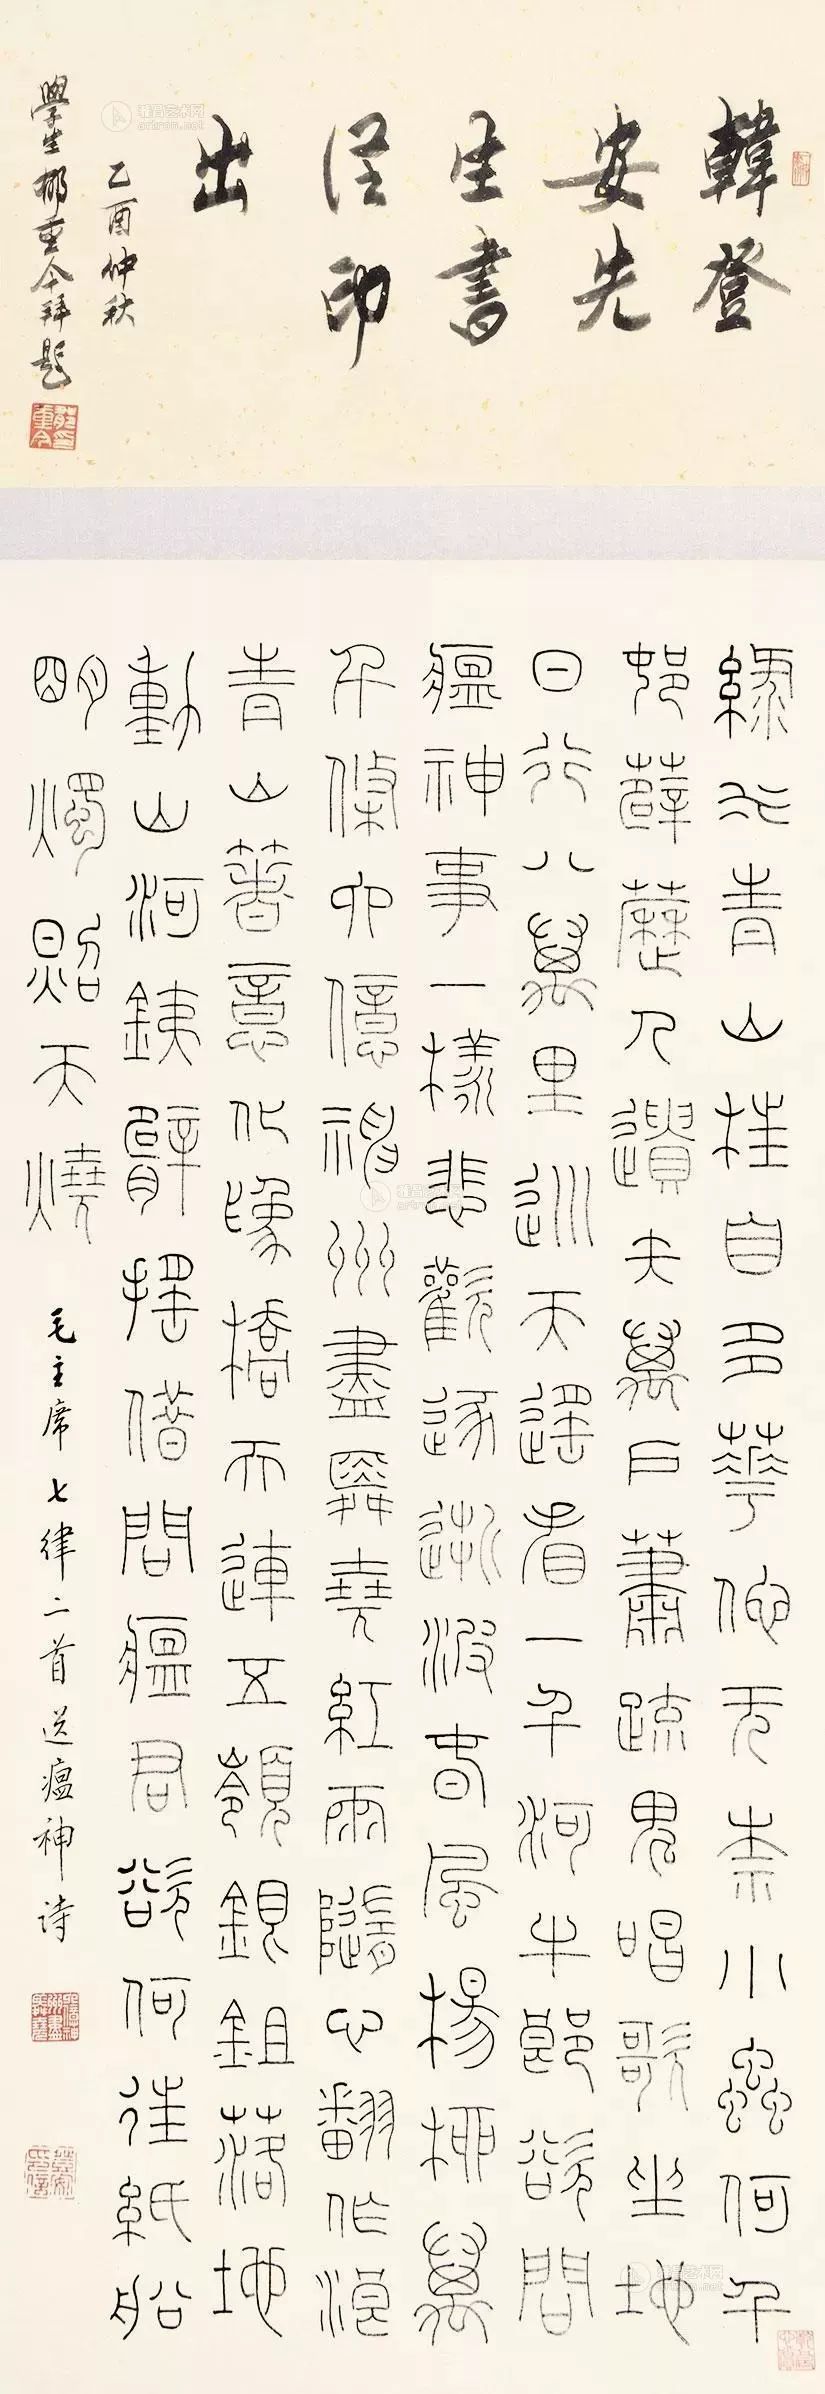 韓登
安先
生書
印
出
乙酉仲秋
學生郁重今拜題
綠水青山枉自多華佗无奈小蟲何千
邨薜藶人遺矢萬戶蕭疏鬼唱歌坐地
日行八萬里巡天遙看一千河牛郎欲問
瘟神事一樣悲歡逐逝波春風楊柳萬
千條六億神州盡舜堯紅雨隨心翻作浪
青山著意化為橋天連五嶺銀鉏落地
動山河鐵臂搖借問瘟君欲何往紙船
明燭照天燒
毛主席七律二首送瘟神詩
雅昌艺术网
artron.net